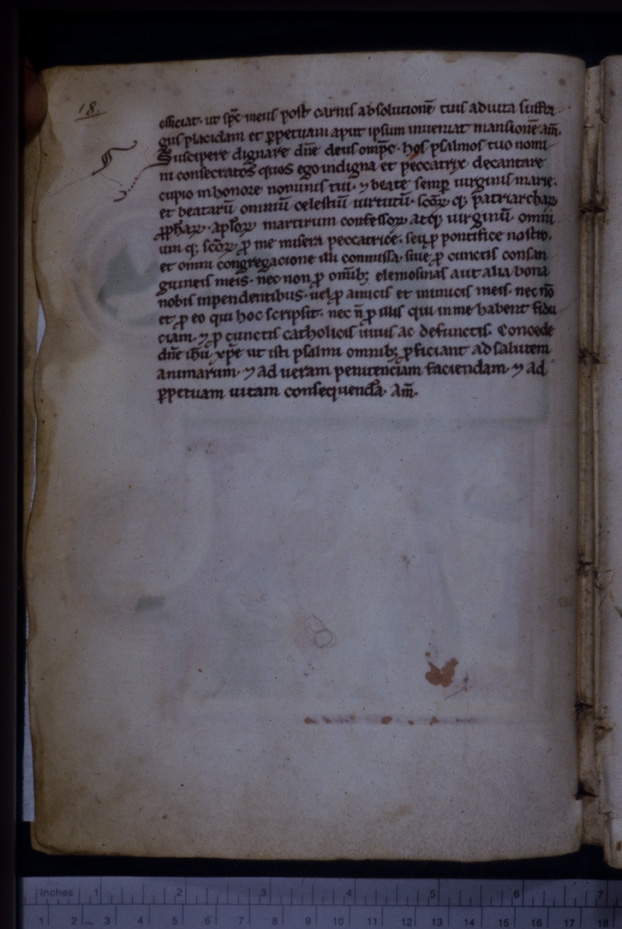 18.
efficiat. ut spc meus post carnis absolutionē tuis adiuta suffra
giis placidam et ꝑpetuam aput ipsum inueniat mansionē am̄.
Suscipere dignare dn̄e deus omp̄c. hos psalmos tuo nomi
ni consecratos quos ego indigna et peccatrix decantare
cupio in honore nominis tui. ⁊ beate semꝑ uirginis marie.
et beatarū omniū celestiū uirtutū. scōꝝ qꝫ patriarchaꝝ
ꝓphaꝝ. apl̄oꝝ martirum confessoꝝ atqꝫ uirginū omni
um qꝫ scōꝝ. ꝓ me misera peccatrice. seu ꝓ pontifice nostro.
et omni congregacione illi commissa. siue ꝓ cunctis consan
guineis meis. nec non ꝓ om̄ibꝫ elemosinas aut alia bona
nobis inpendentibus. uel ꝓ amicis et inimicis meis. nec nō
et ꝓ eo qui hoc scripsit. nec n̄ ꝓ illis qui in me habent fidu
ciam. ⁊ ꝓ cunctis catholicis uiuis ac defunctis. Concede
dn̄e ih̄u xp̄e ut isti psalmi omnibꝫ ꝓficiant ad salutem
animarum. ⁊ ad ueram penitenciam faciendam. ⁊ ad
ꝑpetuam uitam consequendā. Am̄.
inches 1 2 3 4 5 6 7
1 2 3 4 5 6 7 8 9 10 11 12 13 14 15 16 17 18